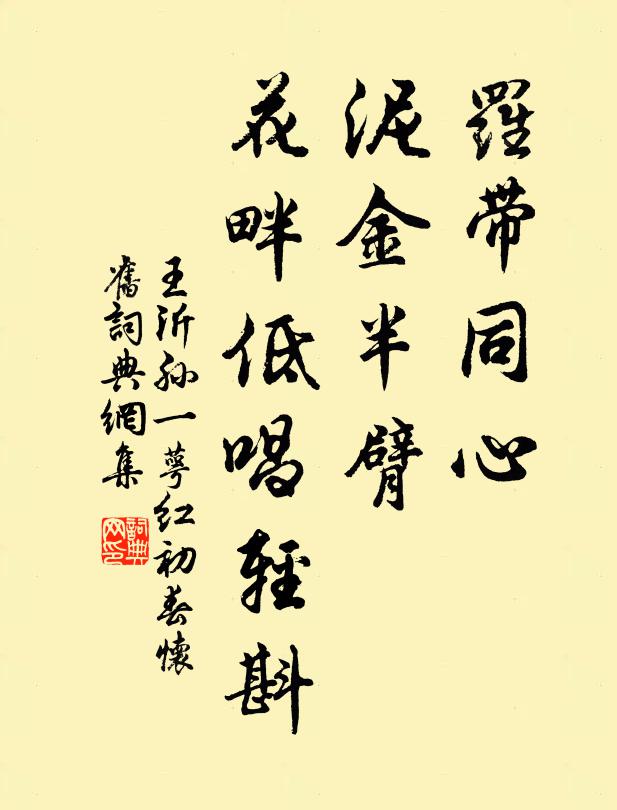 羅帶同心
泥金半臂
花畔低唱輕斟
王沂孫一萼紅初春懷
舊詞典網集
詞典网印